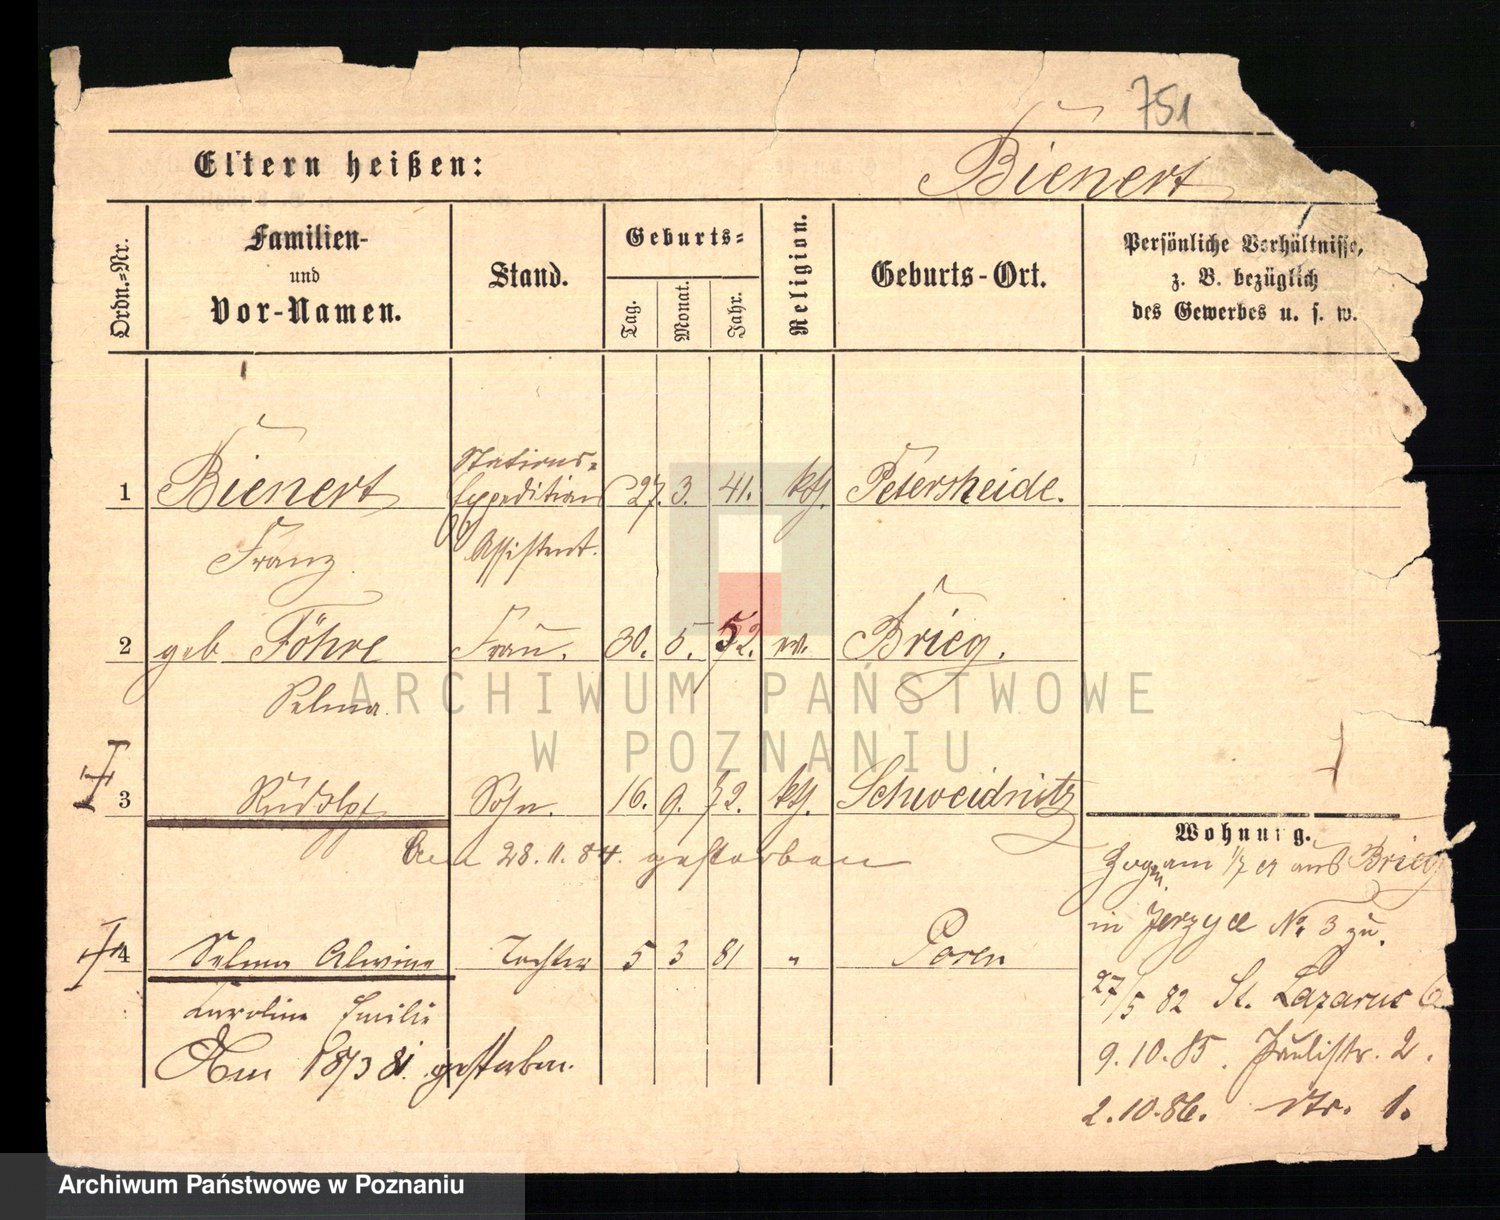 751
Eltern heißen:
Bienert
Ordn.-Nr.
Familien-
und
Vor-Namen.
Stand.
Geburts-
Tag.
Monat.
Jahr.
Religion.
Geburts-Ort.
Persönliche Verhältnisse,
z. B. bezüglich
des Gewerbes u. s. w.
1 Bienert Stations- Expeditions 27. 3. 41. kth. Petersheide.
Franz Assistent.
2 geb Föhre Frau. 30. 5. 52. ev. Brieg.
Selma
3 Rudolph Sohn. 16. 9. 72. kth. Schweidnitz
Am 28.11.84. gestorben
4 Selma Alwine Tochter 5 3 81 " Posen
Karoline Emilie
Am 18/3 81. gestorben.
Wohnung.
Zogen am 1/7 aus Brieg
in Jerzyce No. 3 zu.
27/5 82 St. Lazarus
9.10.85. Paulistr. 2.
2.10.86. 1.
ARCHIWUM PAŃSTWOWE
W POZNANIU
Archiwum Państwowe w Poznaniu